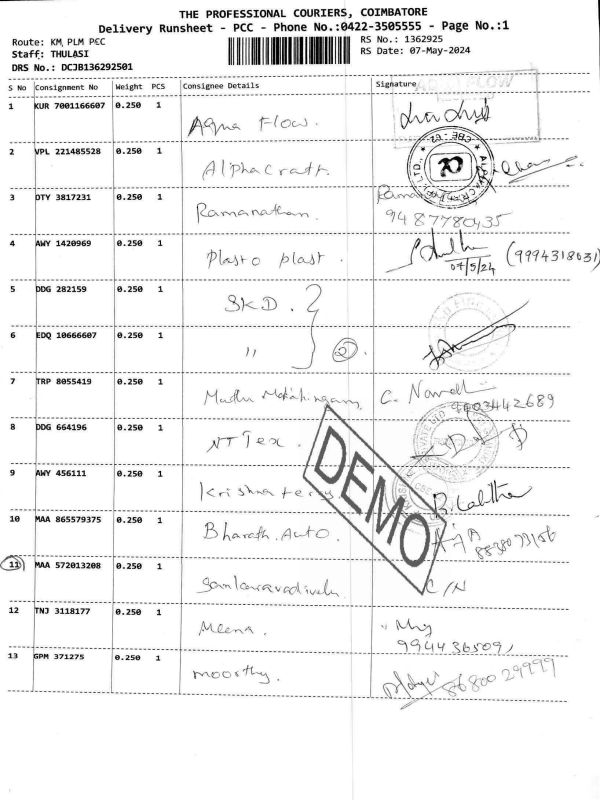 THE PROFESSIONAL COURIERS, COIMBATORE
Delivery Runsheet - PCC - Phone No.:0422-3505555 - Page No.:1
Route: KM, PLM PCC
RS No.: 1362925
Staff: THULASI
RS Date: 07-May-2024
DRS No.: DCJB136292501
S No Consignment No Weight PCS Consignee Details Signature
1 KUR 7001166607 0.250 1 Aqua Flow.
2 VPL 221485528 0.250 1 Alphacraft.
3 OTY 3817231 0.250 1 Ramanathan.
9487780435
4 AWY 1420969 0.250 1 Plasto plast. (9994318031)
07/5/24
5 DDG 282159 0.250 1 SKD.
6 EDQ 10666607 0.250 1 " 2.
7 TRP 8055419 0.250 1 C.
8 DDG 664196 0.250 1 NT Tex.
9 AWY 456111 0.250 1 Krishna
10 MAA 865579375 0.250 1 Bharath. Auto.
11 MAA 572013208 0.250 1 C/N
12 TNJ 3118177 0.250 1 Meena.
13 GPM 371275 0.250 1 moorthy. 8680029999
DEMO